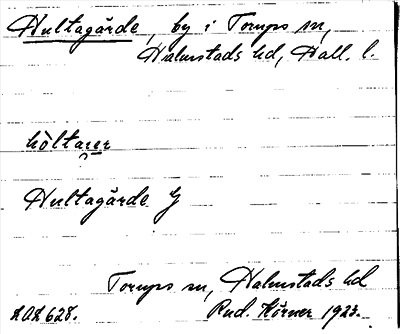 Hultagärde, by i Torups sn,
Halmstads hd, Hall. l.
hòltarer
Hultagärde G
Torups sn, Halmstads hd
Rud. Körner 1923.